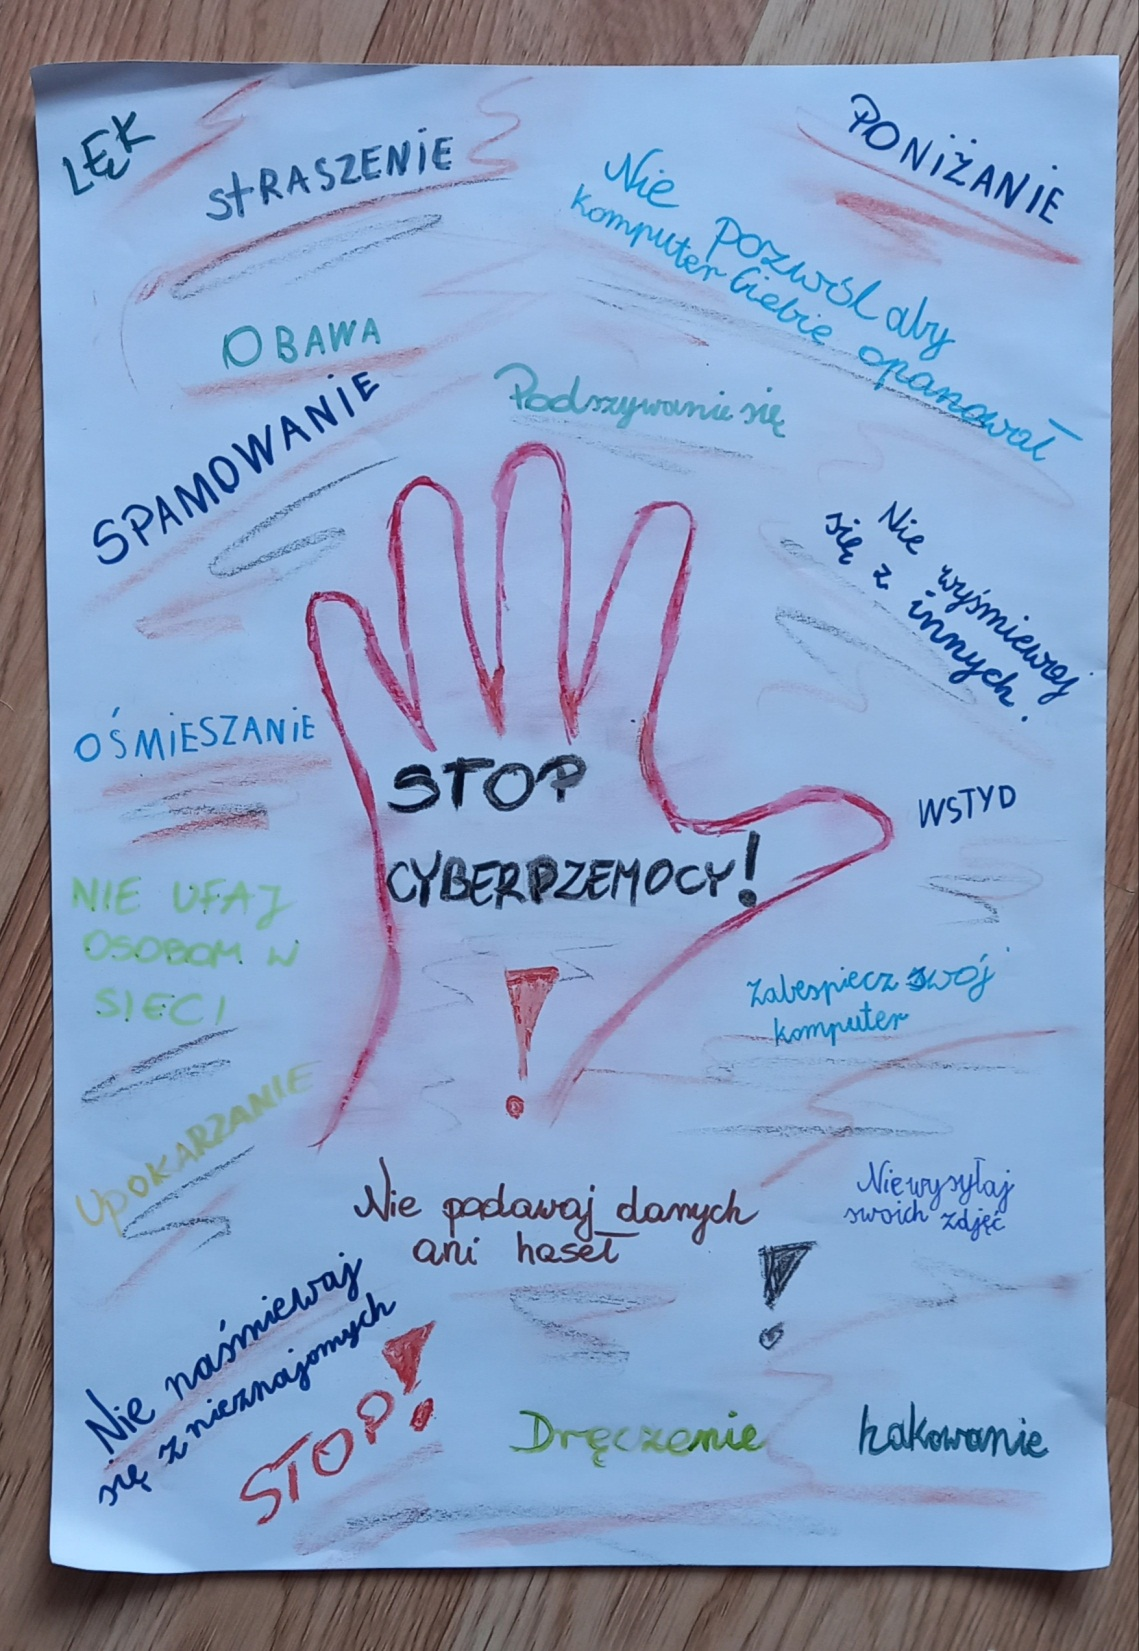 LĘK
StRASZENIE
PONIŻANIE
Nie pozwól aby
komputer Ciebie opanował
OBAWA
SPAMOWANIE
Podszywanie się
Nie wyśmiewaj
się z innych.
OŚMIESZANIE
STOP
CYBERPZEMOCY!
WSTYD
NIE UFAJ
OSOBOM W
SIECI
Zabespiecz swój
komputer
!
UpOKARZANIE
Nie podawaj danych
ani haseł
Nie wysyłaj
swoich zdjęć
!
Nie naśmiewaj
się z nieznajomych
STOP!
Dręczenie
hakowanie